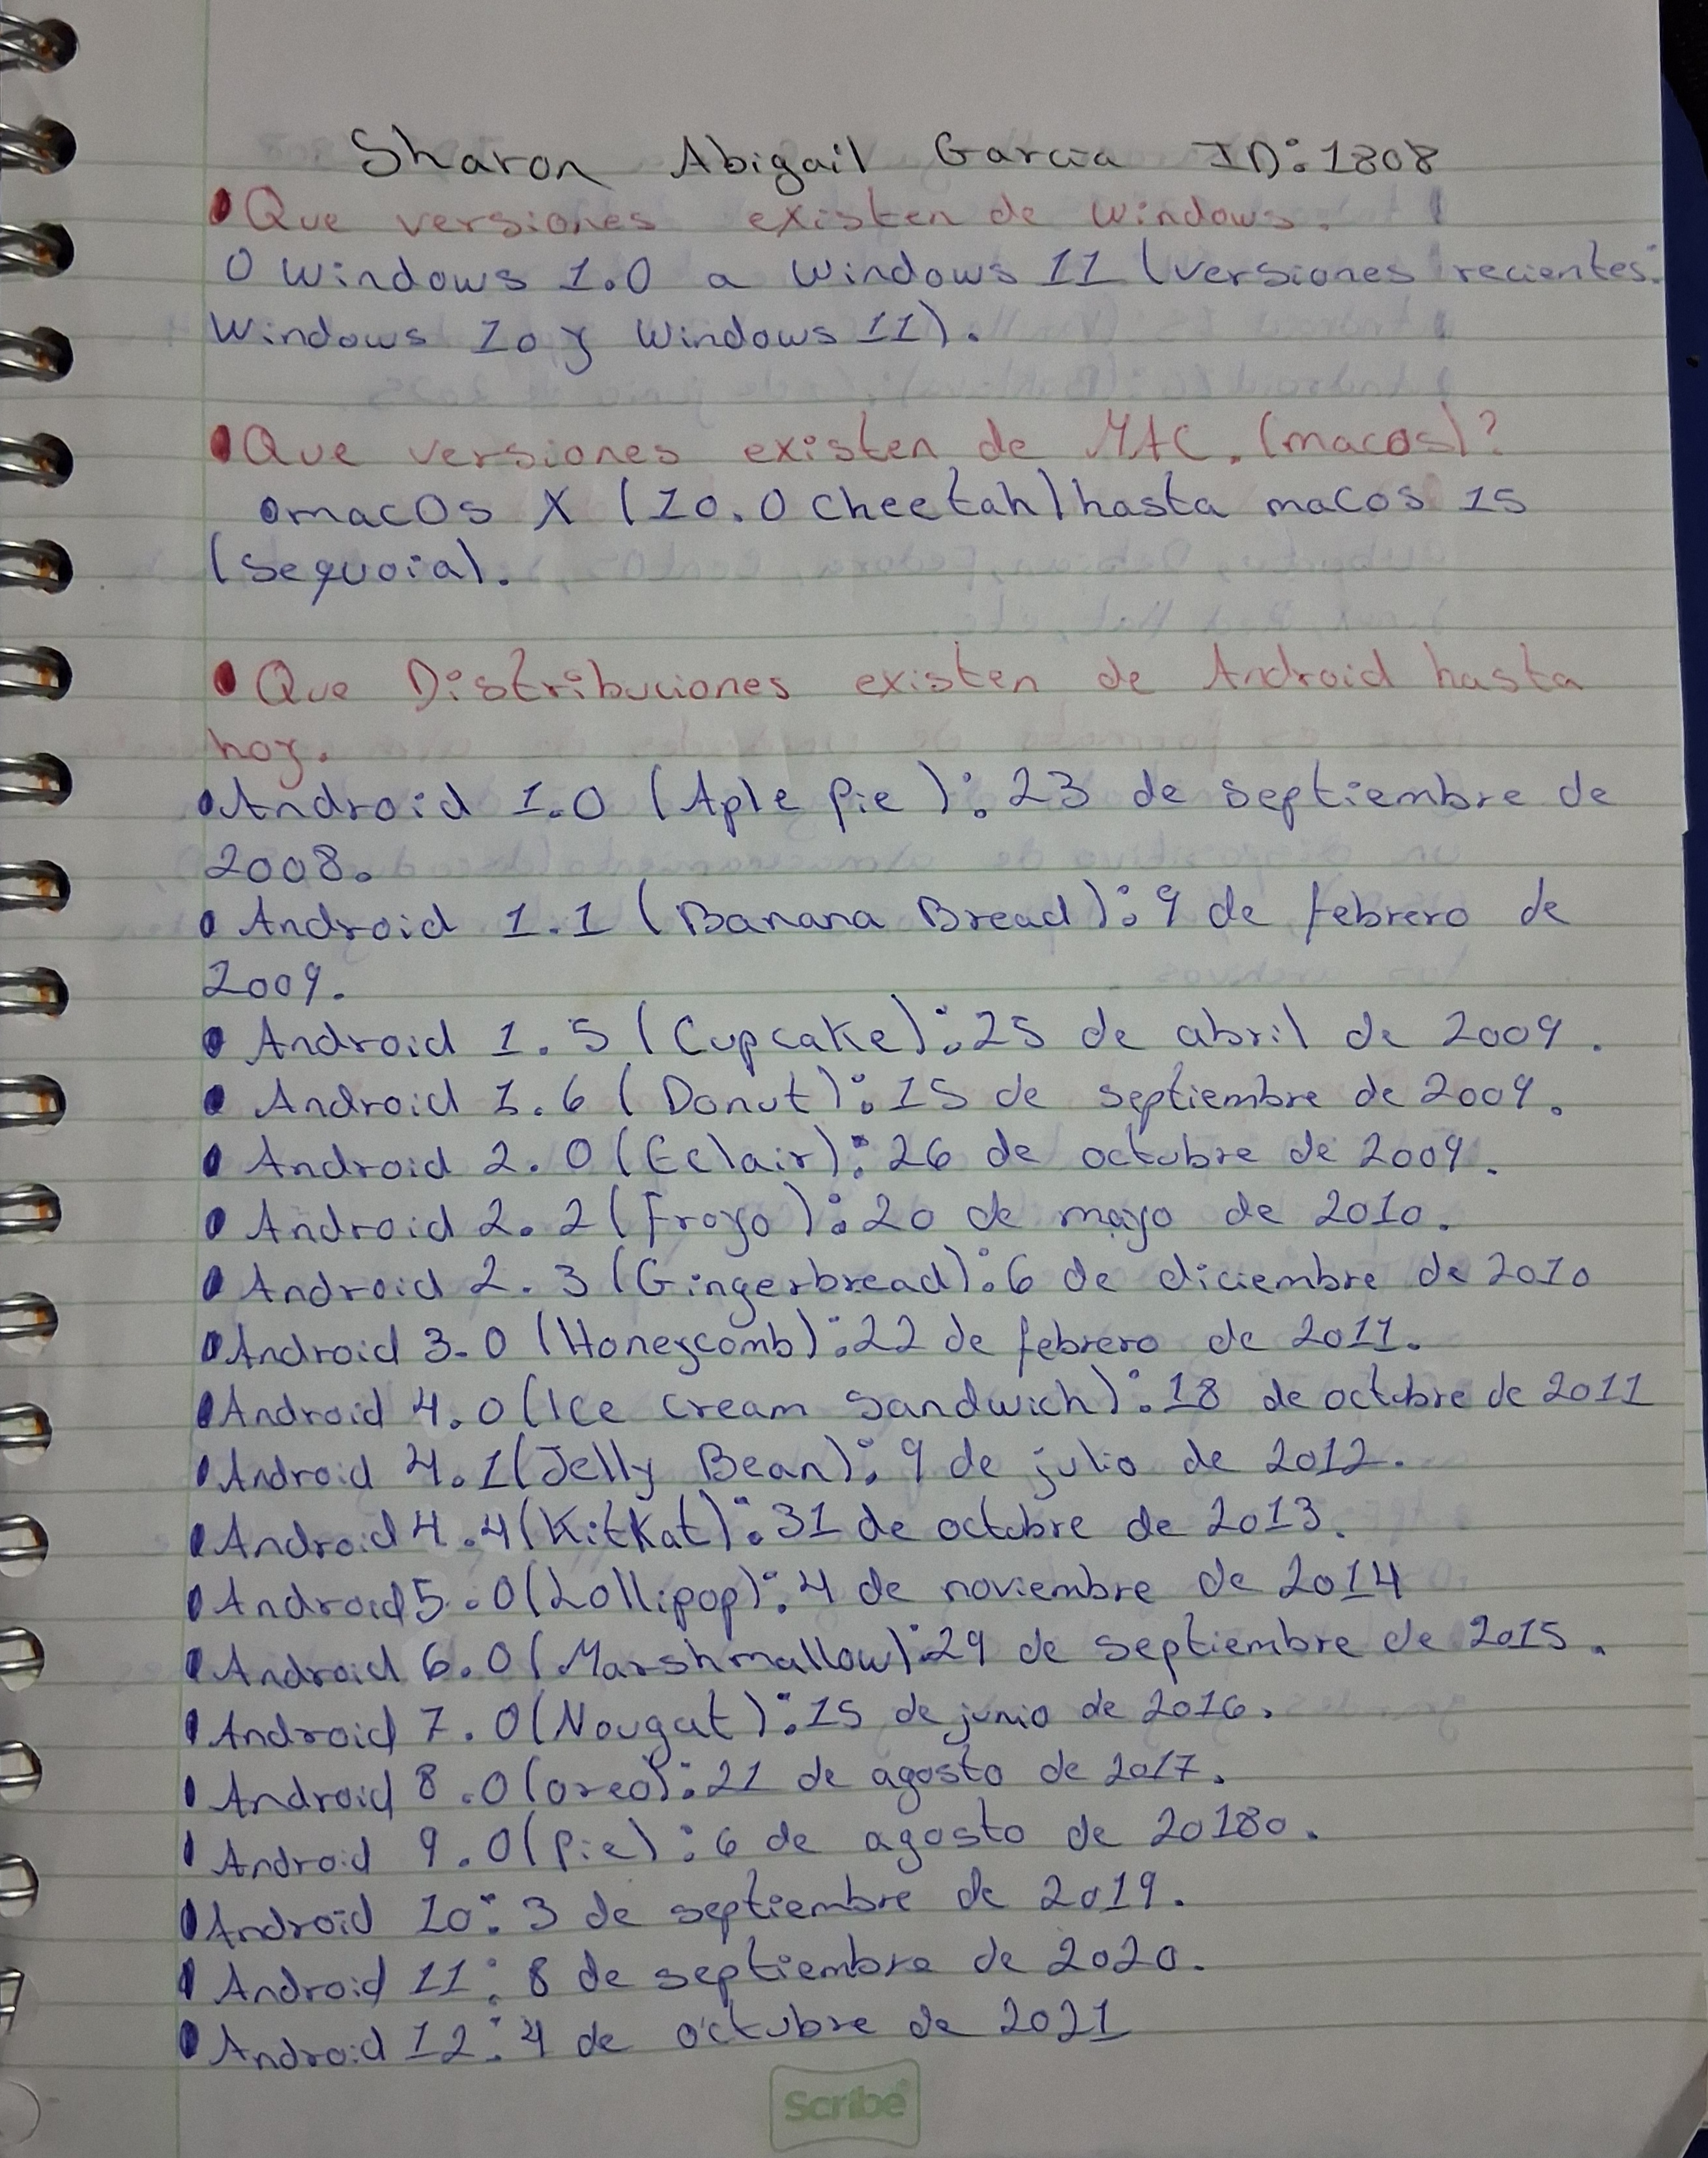 Sharon Abigail Garcia ID:1808
Que versiones existen de Windows.
O Windows 1.0 a Windows 11 (versiones recientes:
Windows 10 y Windows 11).
Que versiones existen de MAC. (macos)?
macOs X (10.0 cheetah) hasta macos 15
(Sequoia).
Que Distribuciones existen de Android hasta
hoy.
Android 1.0 (Aple pie): 23 de septiembre de
2008.
Android 1.1 (Banana Bread): 9 de febrero de
2009.
Android 1.5 (Cupcake): 25 de abril de 2009.
Android 1.6 (Donut): 15 de septiembre de 2009.
Android 2.0 (Eclair): 26 de octubre de 2009.
Android 2.2 (Froyo): 20 de mayo de 2010.
Android 2.3 (Gingerbread): 6 de diciembre de 2010
Android 3.0 (Honeycomb): 22 de febrero de 2011.
Android 4.0 (Ice cream Sandwich): 18 de octubre de 2011
Android 4.1 (Jelly Bean): 9 de julio de 2012.
Android 4.4 (KitKat): 31 de octubre de 2013.
Android 5.0 (Lollipop): 4 de noviembre de 2014
Android 6.0 (Marshmallow): 29 de septiembre de 2015.
Android 7.0 (Nougat): 15 de junio de 2016.
Android 8.0 (oreo): 21 de agosto de 2017.
Android 9.0 (pie): 6 de agosto de 20180.
Android 10: 3 de septiembre de 2019.
Android 11: 8 de septiembre de 2020.
Android 12: 4 de octubre de 2021
Scribe